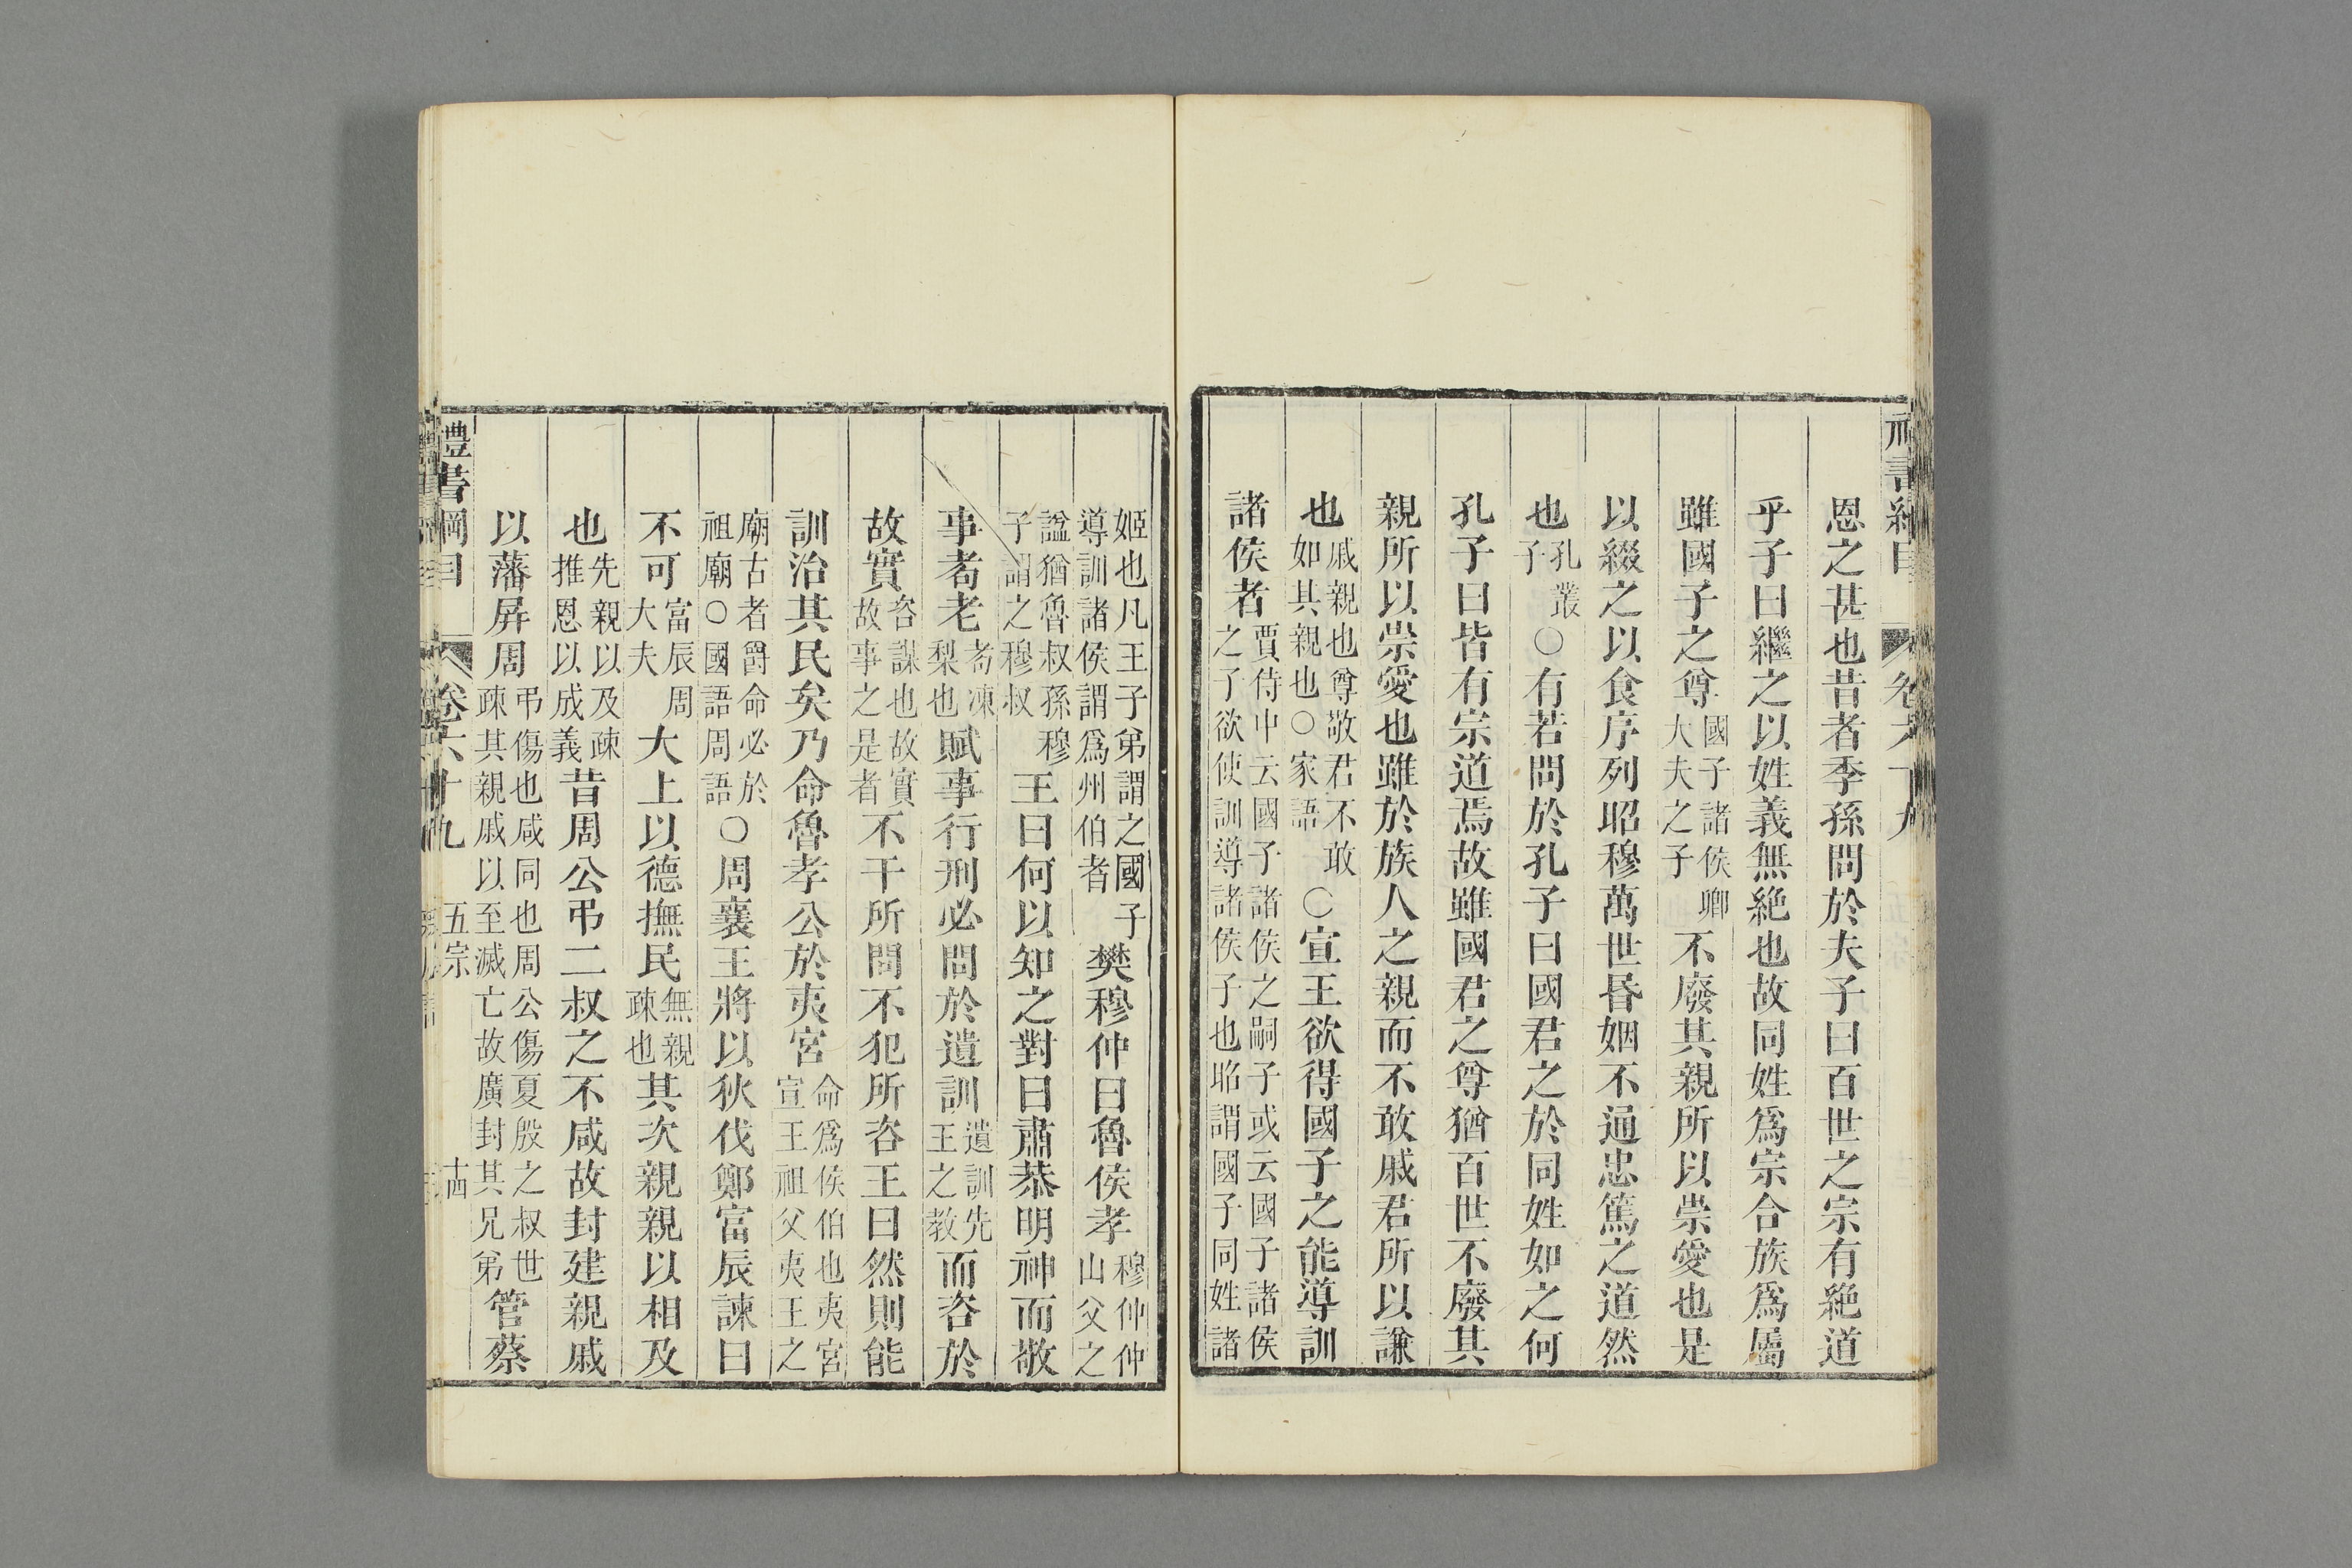 恩之甚也昔者季孫問於夫子曰百世之宗有絶道
乎子曰繼之以姓義無絶也故同姓爲宗合族爲屬
雖國子之尊國子諸侯卿大夫之子不廢其親所以崇愛也是
以綴之以食序列昭穆萬世昏姻不通忠篤之道然
也孔叢子○有若問於孔子曰國君之於同姓如之何
孔子曰皆有宗道焉故雖國君之尊猶百世不廢其
親所以崇愛也雖於族人之親而不敢戚君所以謙
也戚親也尊敬君不敢如其親也○家語○宣王欲得國子之能導訓
諸侯者賈侍中云國子諸侯之嗣子或云國子諸侯之子欲使訓導諸侯子也昭謂國子同姓諸
姬也凡王子弟謂之國子導訓諸侯謂爲州伯者樊穆仲曰魯侯孝穆仲仲山父之
諡猶魯叔孫穆子謂之穆叔王曰何以知之對曰肅恭明神而敬
事耈老耈凍梨也賦事行刑必問於遺訓遺訓先王之教而咨於
故實咨謀也故實故事之是者不干所問不犯所咨王曰然則能
訓治其民矣乃命魯孝公於夷宮命爲侯伯也夷宮宣王祖父夷王之
廟古者爵命必於祖廟○國語周語○周襄王將以狄伐鄭富辰諫曰
不可富辰周大夫大上以德撫民無親疎也其次親親以相及
也先親以及疎推恩以成義昔周公弔二叔之不咸故封建親戚
以藩屏周弔傷也咸同也周公傷夏殷之叔世疎其親戚以至滅亡故廣封其兄弟管蔡
禮書綱目 卷六十九 五宗 十四